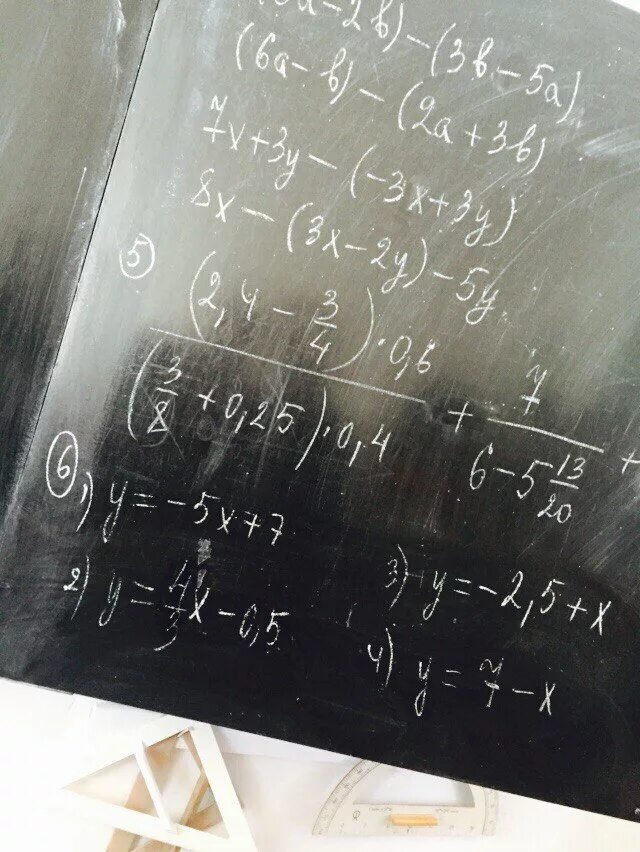 a − 2b) − (3b − 5a)
(6a − b) − (2a + 3b)
7x + 3y − (−3x + 3y)
8x − (3x − 2y) − 5y
5) (2,4 − 3/4) · 0,6 / (3/8 + 0,25) · 0,4 + 7 / 6 − 5 13/20 +
6) 1) y = −5x + 7
2) y = 4/3 x − 0,5
3) y = −2,5 + x
4) y = 7 − x